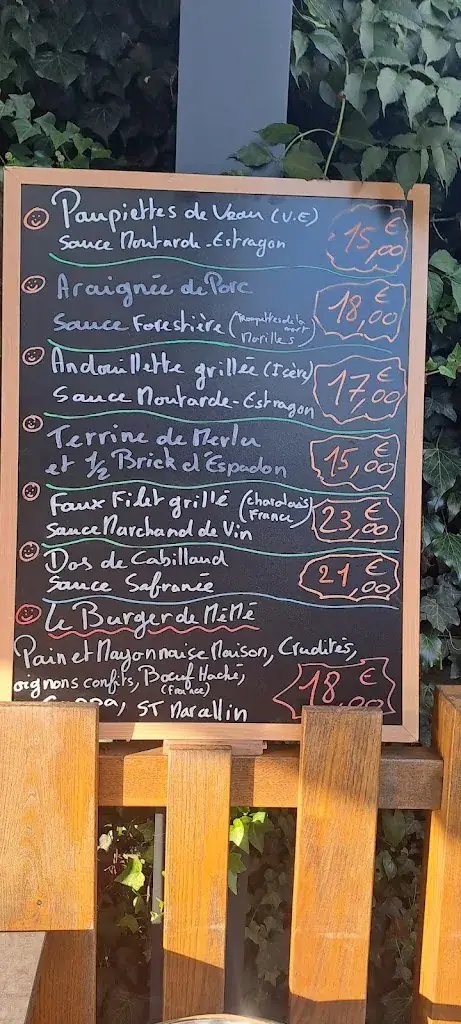 Paupiettes de Veau (U.E)
Sauce Moutarde-Estragon
15,00 €
Araignée de Porc
Sauce Forestière (Trompettes de la mort Morilles)
18,00 €
Andouillette grillée (Isère)
Sauce Moutarde-Estragon
17,00 €
Terrine de Merlu
et 1/2 Brick d'Espadon
15,00 €
Faux Filet grillé (Charolais France)
Sauce Marchand de Vin
23,00 €
Dos de Cabillaud
Sauce Safranée
21,00 €
Le Burger de Mémé
Pain et Mayonnaise Maison, Crudités,
oignons confits, Boeuf Haché,
(France)
ST Marcellin
18,00 €